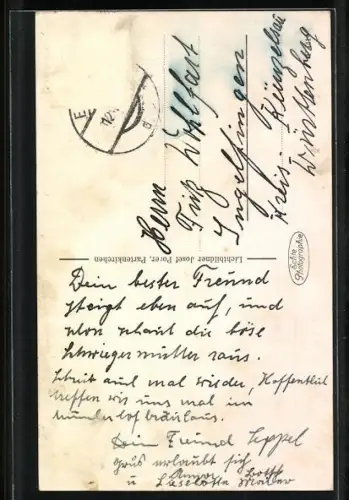 Herrn
Fritz Wohlfart
Ingelfingen
Kreis Künzelsau
Württemberg
Echte Photographie
Lichtbildner Josef Porer, Partenkirchen
Dein bester Freund
steigt eben auf, und
schon schaut die böse
Schwiegermutter raus.
Schreib auch mal wieder, Hoffentlich
treffen wir uns mal im
Dein Freund Seppel
Grus erlaubt sich
u Lieselotte